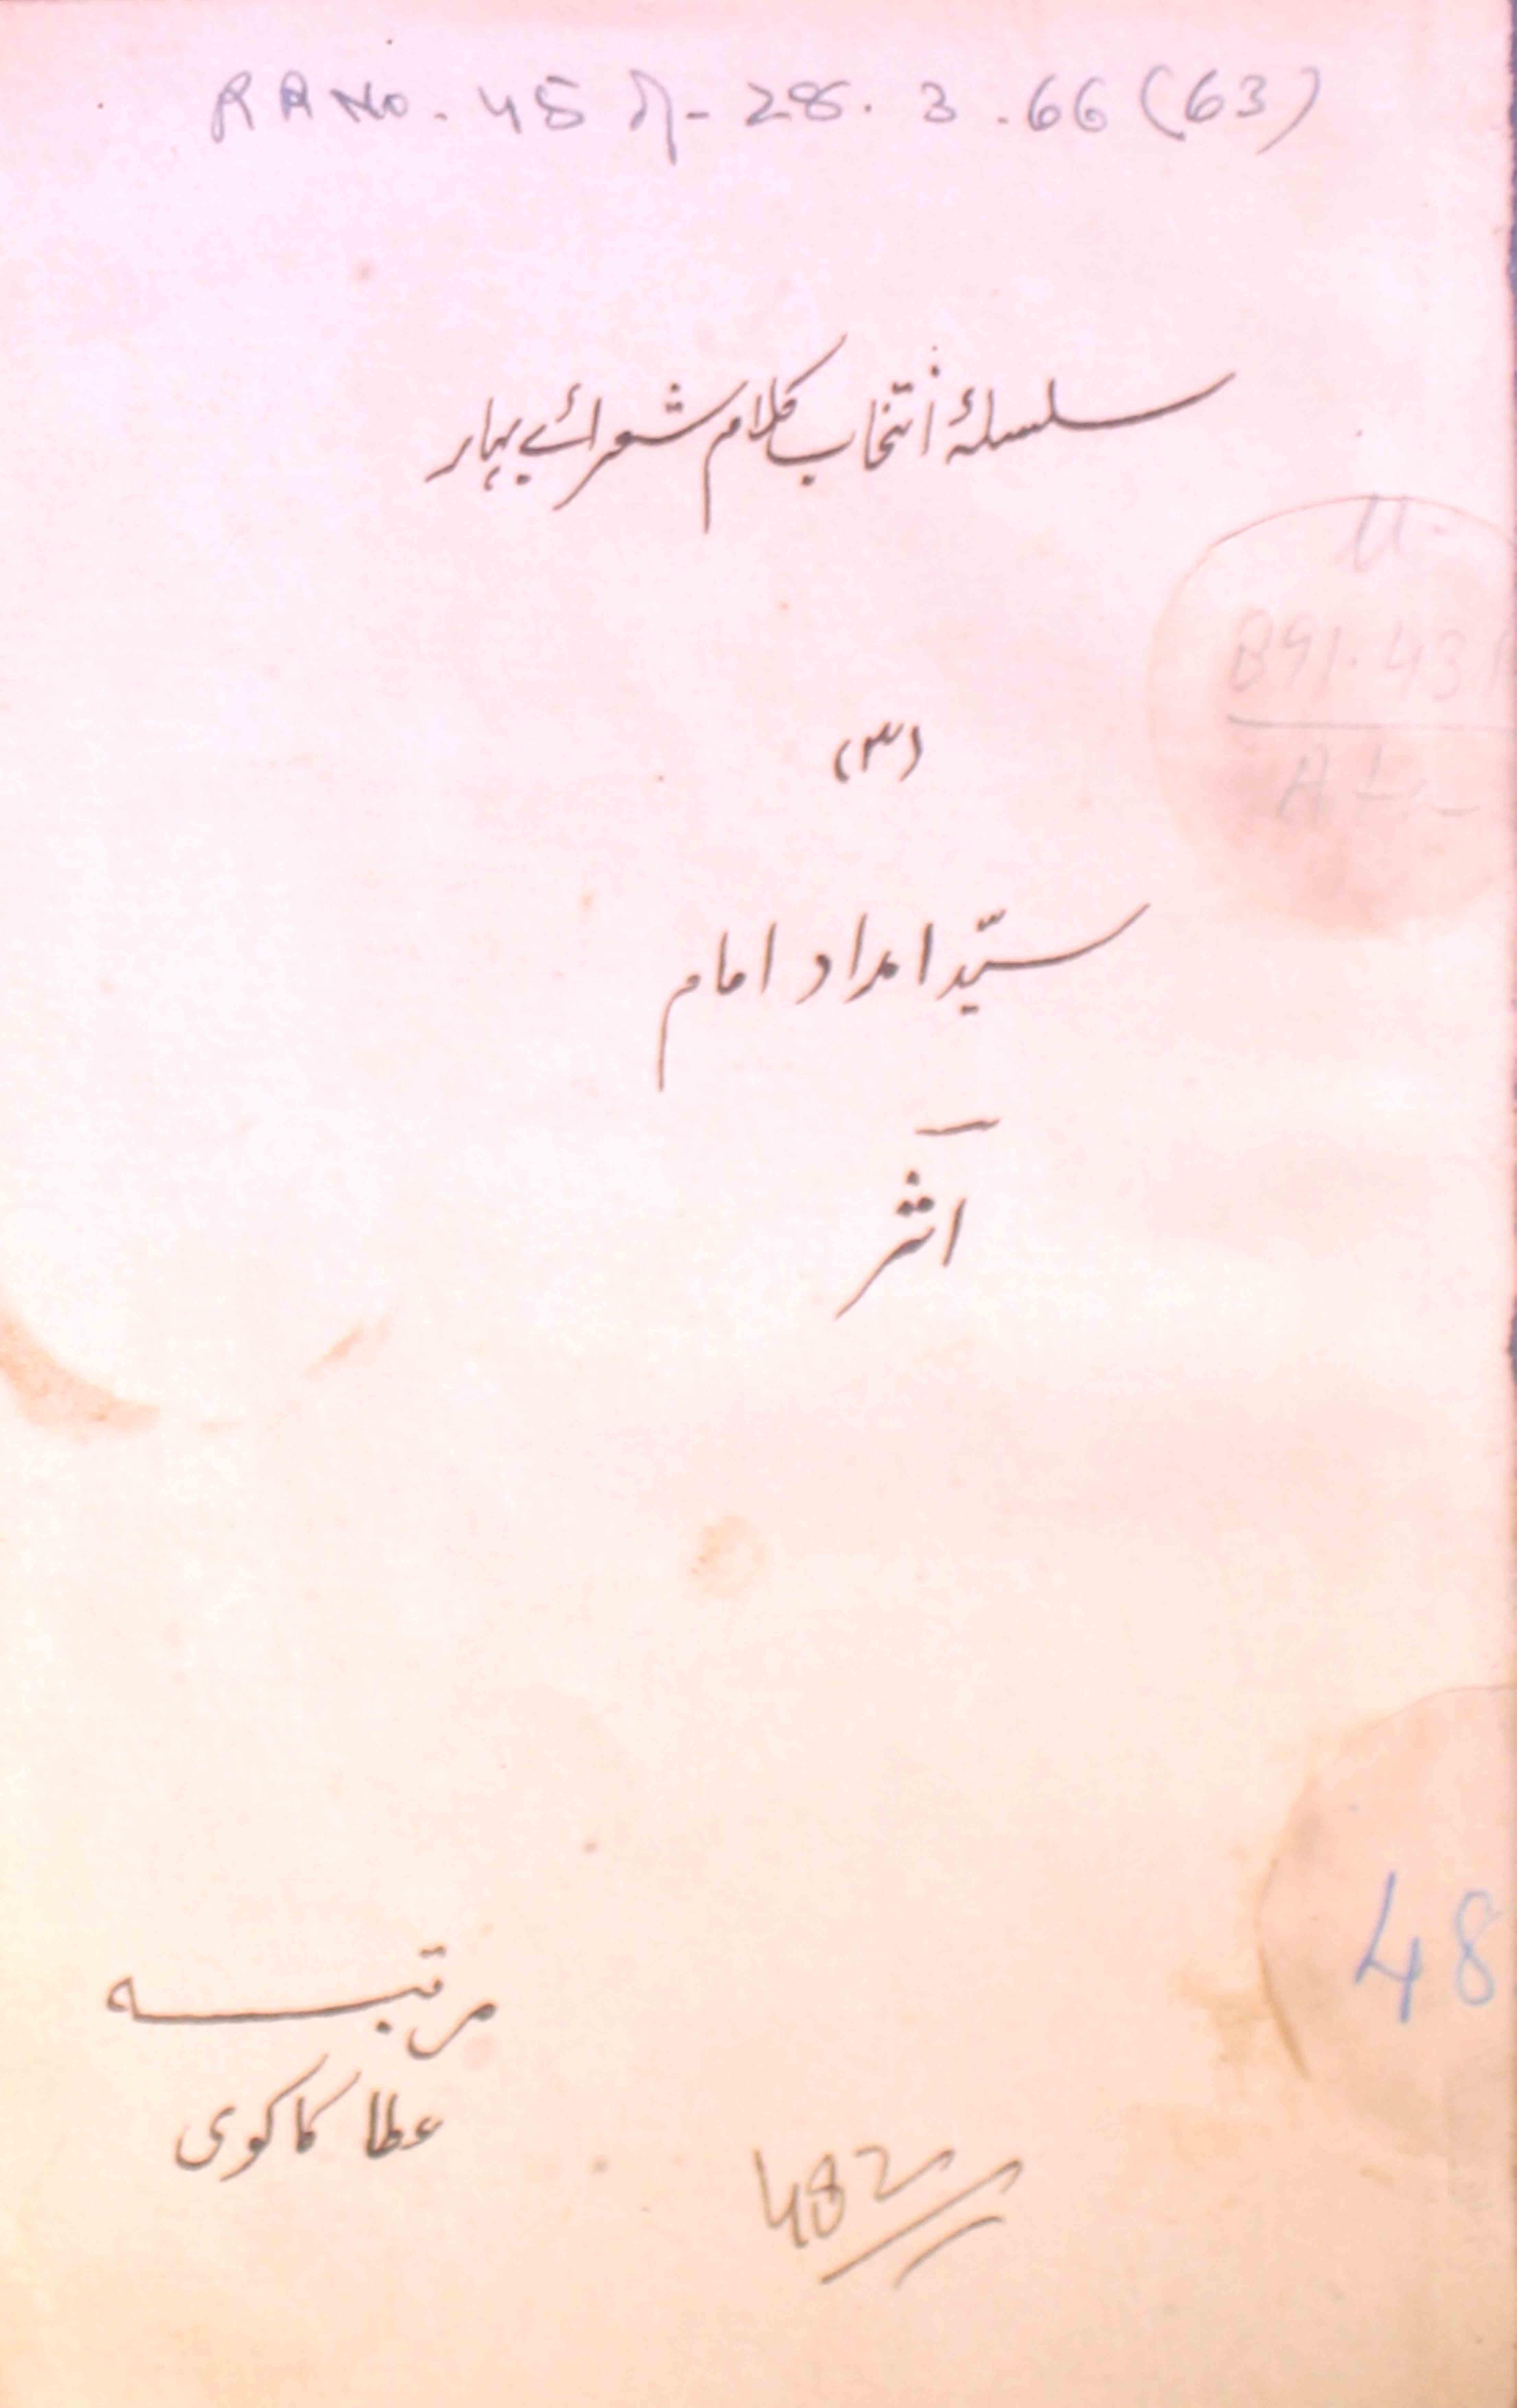 RR No. 45 - 28. 3. 66 (63)
سلسلۂ انتخاب کلام شعرائے بہار
U.
891.431
(۳)
سیّد امداد امام
اثر
48
مرتبہ
عطا کاکوی
482